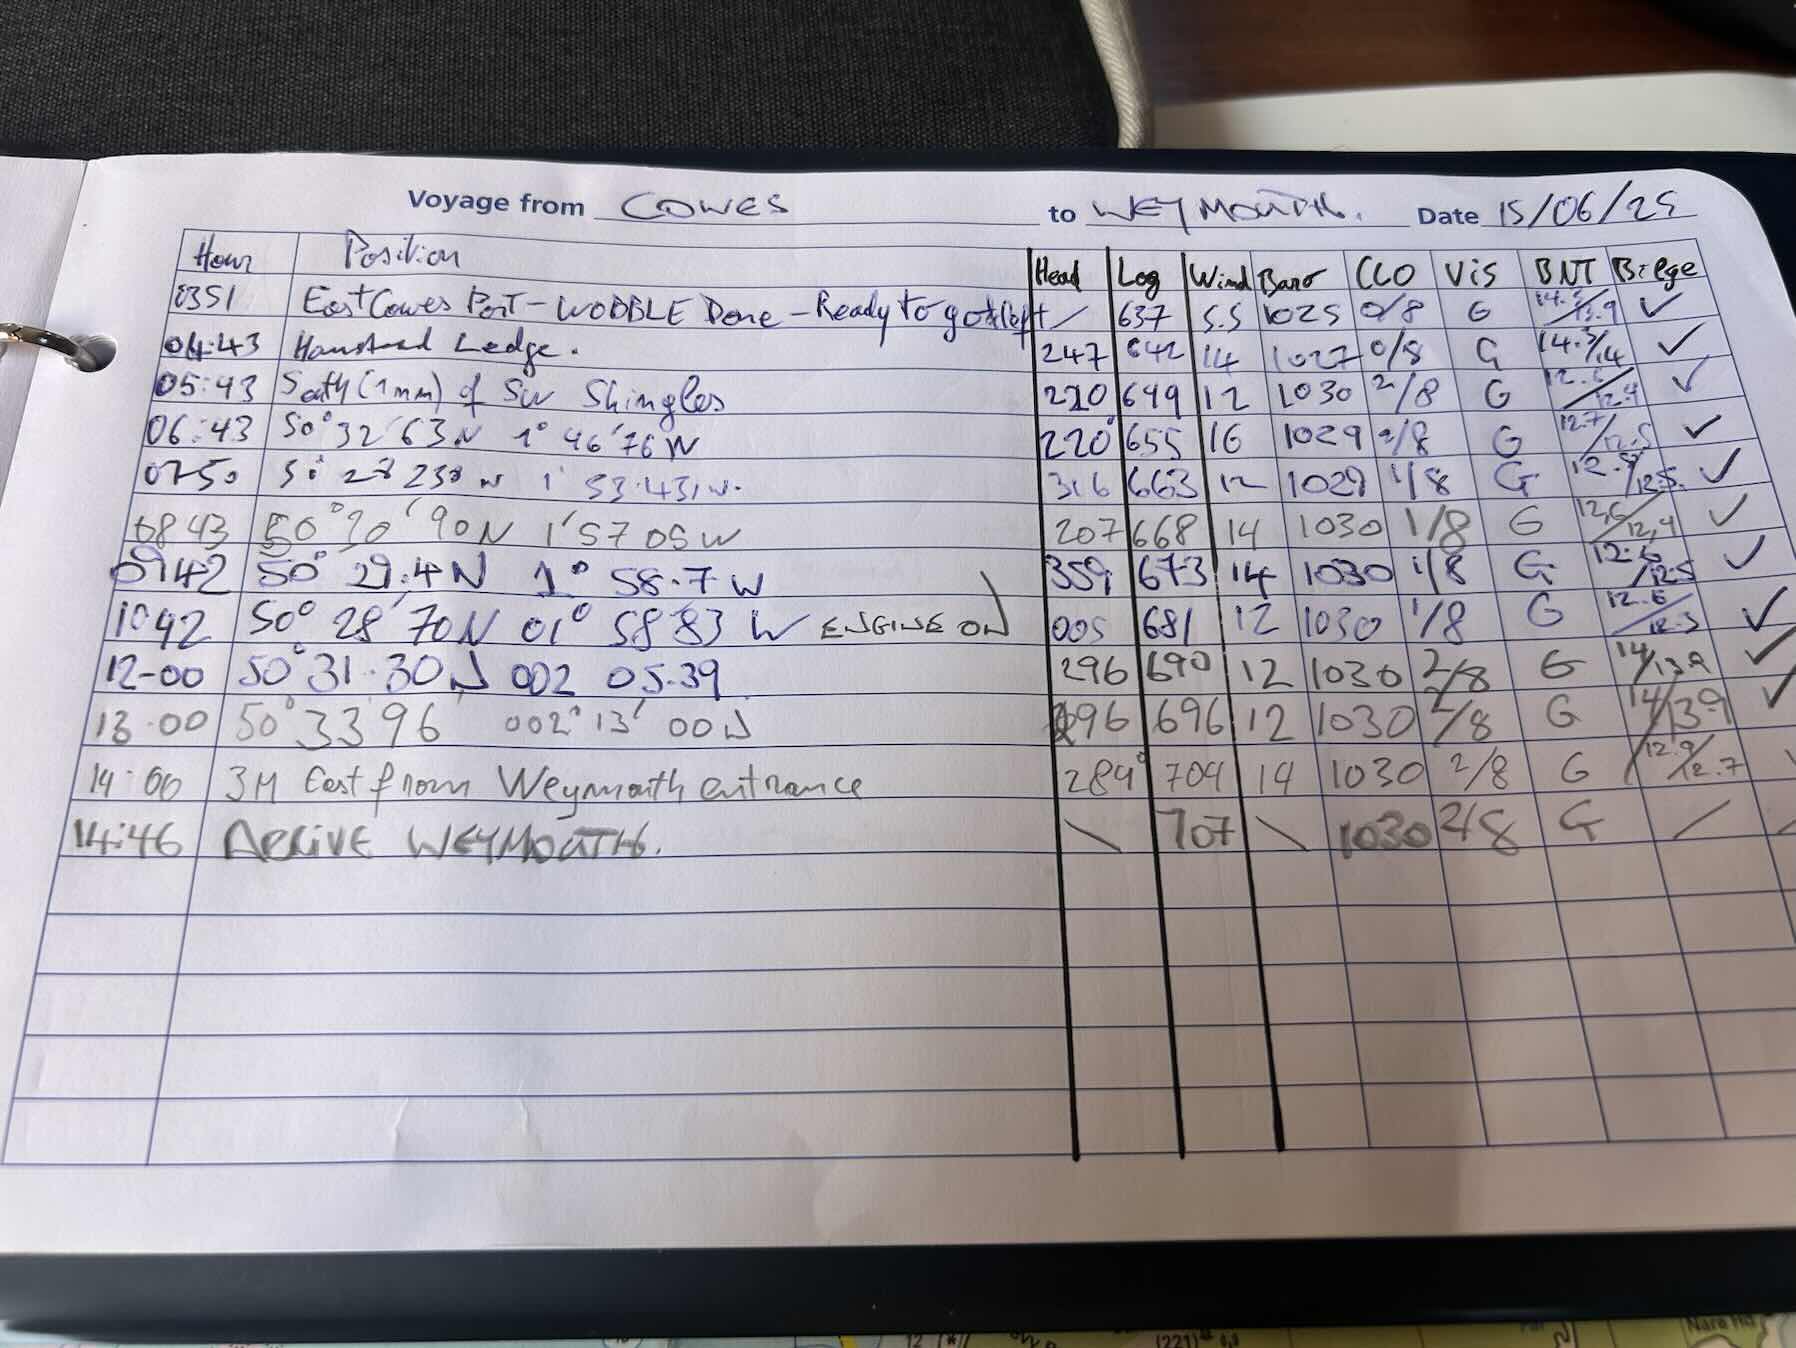 Voyage from COWES to WEYMOUTH. Date 15/06/25
Hour Position Head Log Wind Baro CLO Vis BNT Bilge
0351 East Cowes Port - WOBBLE Done - Ready to go left / 637 5.5 1025 0/8 G 13.9 ✓
04:43 Hamstead Ledge. 247 642 14 1027 0/8 G 14.3/14 ✓
05:43 South (1nm) of SW Shingles 220 649 12 1030 2/8 G 12.4 ✓
06:43 50° 32'63 N 1° 46'76 W 220° 655 16 1029 2/8 G 12.7/12.5 ✓
0750 N 1° 53.431 W. 316 663 12 1029 1/8 G 12.5 ✓
0843 50° 30' 90 N 1' 57 05 W 207 668 14 1030 1/8 G 12,6/12,4 ✓
0942 50° 29.4 N 1° 58.7 W 359 673 14 1030 1/8 G 12.6/12.5 ✓
1042 50° 28' 70 N 01° 58' 83 W ENGINE ON 005 681 12 1030 1/8 G 12.6/12.5 ✓
12-00 50° 31.30 N 002 05.39 296 690 12 1030 2/8 G 14/13.9 ✓
13.00 50° 33 96' 002° 13' 00 W 296 696 12 1030 2/8 G 14/13.9 ✓
14:00 3M East from Weymouth entrance 284° 704 14 1030 2/8 G 12.9/12.7
14:46 ARRIVE WEYMOUTH. \ 707 \ 1030 2/8 G / /
(221)
12
Nara Hd